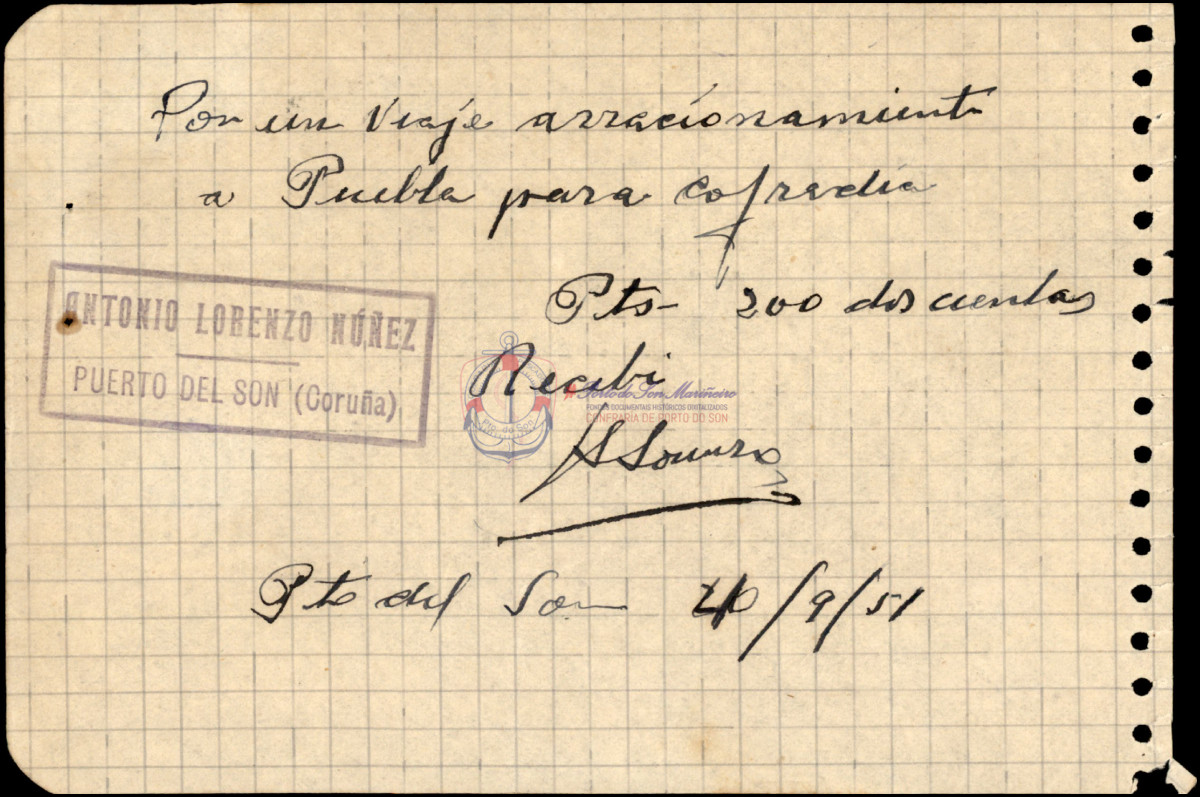 Por un viaje arracionamiento
a Puebla para cofradia
Pts- 200 dos cientas
ANTONIO LORENZO NÚÑEZ
PUERTO DEL SON (Coruña)
Recibi
Porto do Son Mariñeiro
FONDOS DOCUMENTAIS HISTÓRICOS DIXITALIZADOS
CONFRARÍA DE PORTO DO SON
Pto. do Son
Pto del Son /9/51